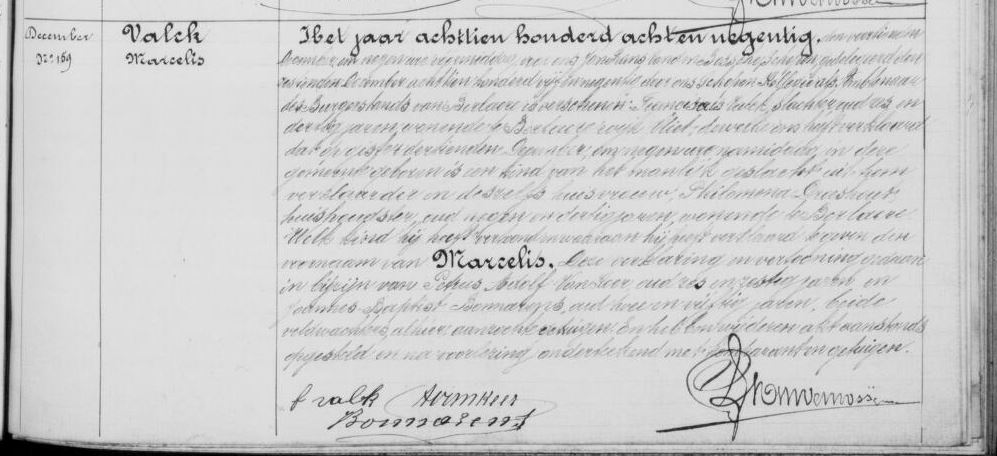 December
N.º 169
Valck
Marcelis
Het jaar achttien honderd acht en negentig, den veertienden
December, om negen ure voormiddag, voor ons
zes in den December achttien honderd vijf en negentig door ons Schepen als Ambtenaar
des Burgerstands van Berlaere is verschenen: Franciscus Valck, slachter, oud zes en
dertig jaren, wonende te Berlaere wijk Vliet, dewelke ons heeft verklaard
dat op gister dertienden December, om negen ure namiddag, in deze
gemeente geboren is een kind van het manlijk geslacht uit hem
verklaarder en deszelfs huisvrouw, Philomena
huishoudster, oud negen en dertig jaren, wonende te Berlaere
Welk kind hij heeft vertoond en waaraan hij heeft verklaard te geven den
voornaam van Marcelis. Deze verklaring en vertooning gedaan
in bijzijn van Petrus Adolf oud zes en zestig jaren en
Joannes Baptist oud twee en vijftig jaren, beide
veldwachters, alhier aanzochte getuigen. En hebben wij dezen akt aanstonds
opgesteld en na voorlezing, onderteekend met komparant en getuigen.
f valk